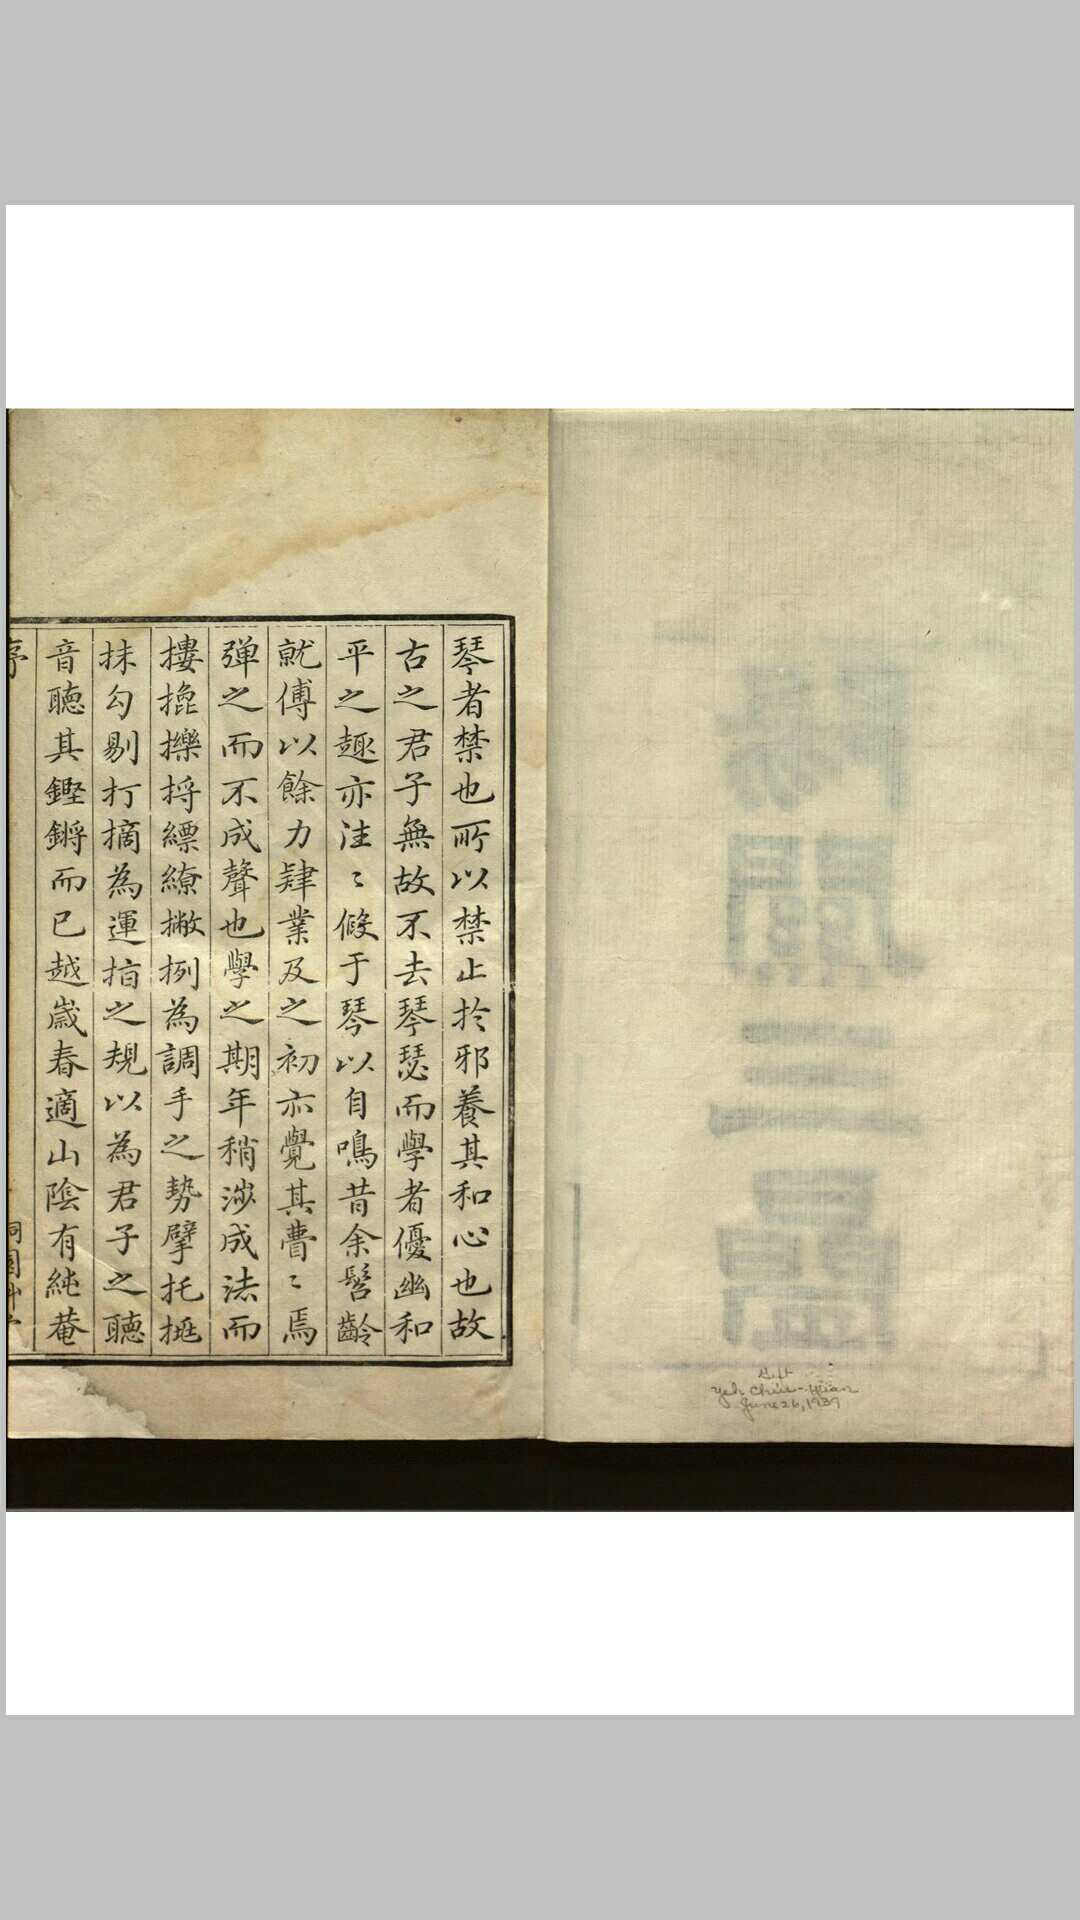 琴者禁也所以禁止於邪養其和心也故
古之君子無故不去琴瑟而學者優幽和
平之趣亦往〻假于琴以自鳴昔余髫齡
就傅以餘力肄業及之初亦覺其瞢〻焉
彈之而不成聲也學之期年稍涉成法而
摟擸擽捋縹繚撇捩為調手之勢擘托挑
抹勾剔打摘為運指之規以為君子之聽
音聽其鏗鏘而已越歲春適山陰有純菴
序
Gift
Yeh Chiu-Yüan
June 26, 1939